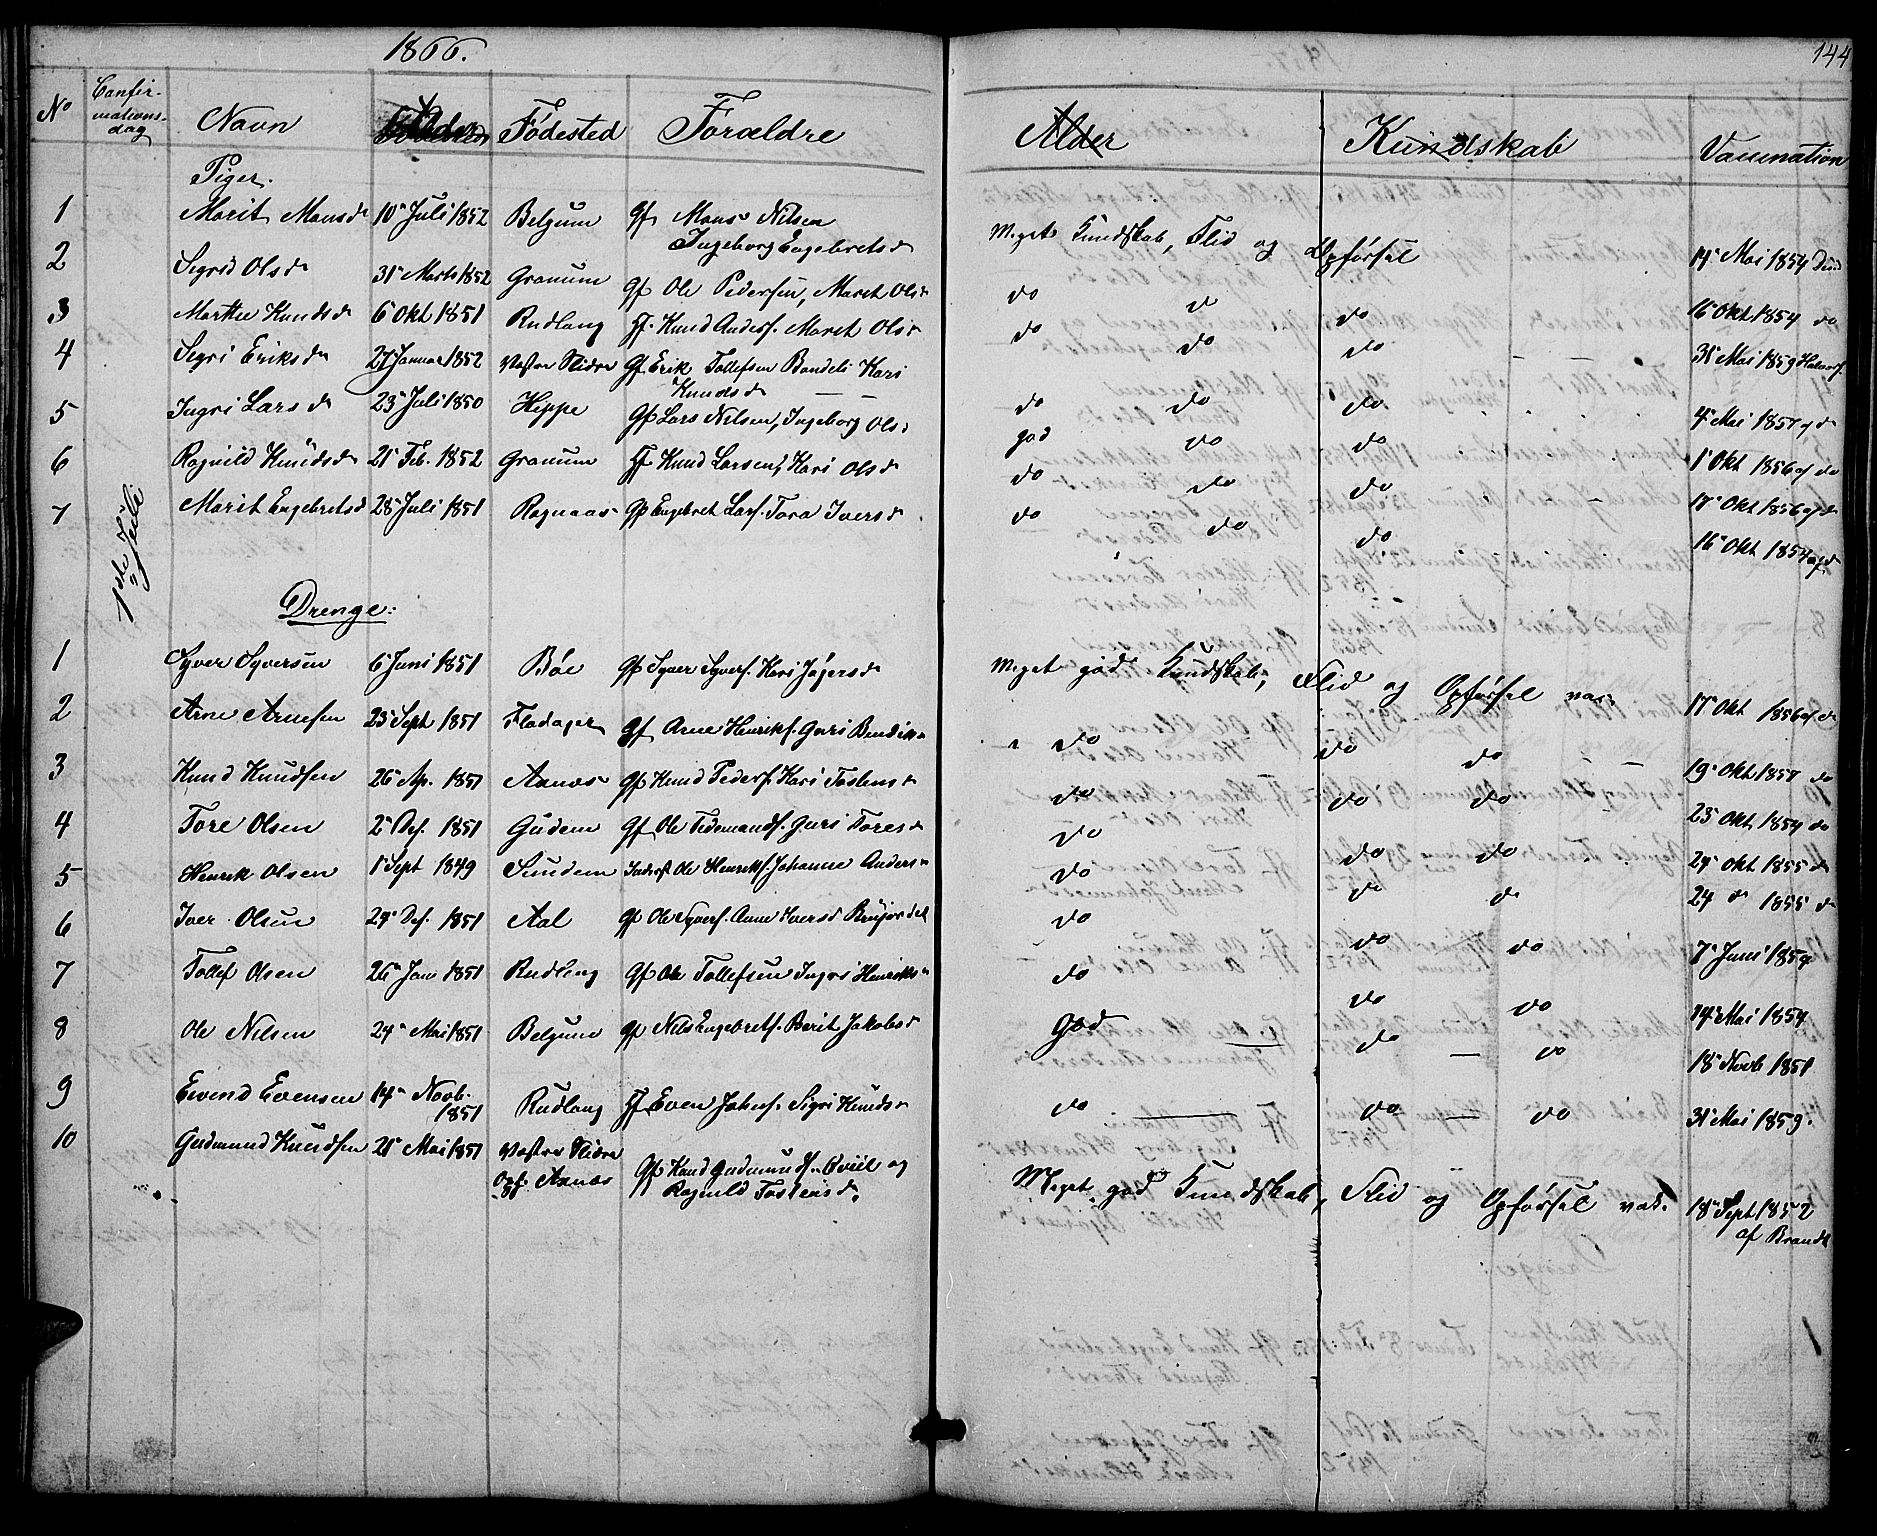 1866.
144
No Confirmationsdag Navn Alder Fødested Forældre Alder Kundskab Vaccination
1ste Juli
Piger.
1 Marit Monsd 10 Juli 1852 Belgum Gf Mons Nilsen Ingeborg Engebretsd Meget Kundskab, Flid og Opførsel 14 Mai 1854
2 Sigrid Olsd 31 Marts 1852 Granum Gf Ole Pedersen, Maret Olsd do do do 16 Okt 1854 do
3 Marthe Knudsd 6 Okt 1851 Rudlang Ff. Knud Anders. Maret Olsd do do do 31 Mai 1859
4 Sigri Eriksd 27 Januar 1852 Vestre Slidre Gf Erik Tollefsen Bandeli Kari Knudsd do do do 4 Mai 1857 af do
5 Ingri Larsd 23 Juli 1850 Hippe Gf Lars Nilsen, Ingeborg Olsd god do do 1 Okt 1856 af do
6 Ragnild Knudsd 21 Feb. 1852 Granum Ff Knud Larsen, Kari Olsd do do do 17 Okt 1856 af do
7 Marit Engebretsd 28 Juli 1851 Rognaas Gf Engebret Lars. Tora Iversd do do do 16 Okt 1854 af do
Drenge:
1 Syver Syversen 6 Juni 1851 Bøe Gf Syver Syvers. Kari Jøgersd Meget god Kundskab, Flid og Opførsel var: 17 Okt 1856 af do
2 Arne Arnesen 23 Sept 1851 Fladager Gf Arne Henriks. Guri Bendiksd do do do 19 Okt 1857 do
3 Knud Knudsen 26 Ap. 1851 Axnes Gf Knud Peders. Kari Tostensd do do do 23 Okt 1854 do
4 Tore Olsen 2 Des. 1851 Gudem Gf Ole Tidemands. Guri Toresd do do do 24 Okt 1855 do
5 Henrik Olsen 1 Sept 1849 Sundem Inderst Ole Henriks. Johanne Andersd do do do 24 do 1855 do
6 Iver Olsen 24 Des. 1851 Aal Gf Ole Syvers. Anne Iversd do do do 7 Juni 1859
7 Tollef Olsen 26 Jan 1851 Rudlang Gf Ole Tollefsen Ingri Henriksd do do do 14 Mai 1854
8 Ole Nilsen 24 Mai 1851 Belgum Gf Nils Engebrets. Berit Jakobsd God do do 18 Novb 1851
9 Eivind Evensen 14 Novb. 1851 Rudlang Ff Even Johns. Sigri Knudsd do do do 31 Mai 1859.
10 Gudmund Knudsen 21 Mai 1851 Vestre Slidre Opf. Axnes Gf Knud Gudmunds. Qviil og Ragnild Tostensd. Meget god Kundskab, Flid og Opførsel var. 18 Sept 1852 af Brandt